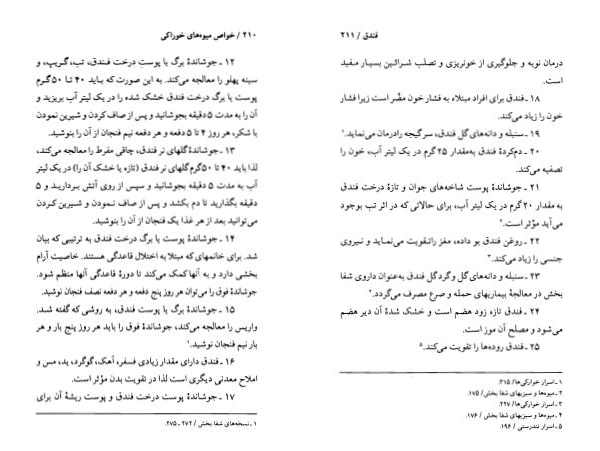 ۲۱۰ / خواص میوه‌های خوراکی
۱۲ ـ جوشاندهٔ برگ یا پوست درخت فندق، تب، گریپ، و
سینه پهلو را معالجه می‌کند. به این صورت که باید ۴۰ تا ۵۰ گرم
پوست یا برگ درخت فندق خشک شده را در یک لیتر آب بریزید و
آن را به مدت ۵ دقیقه بجوشانید و پس از صاف کردن و شیرین نمودن
با شکر، هر روز ۴ تا ۵ دفعه و هر دفعه نیم فنجان از آن را بنوشید.
۱۳ ـ جوشاندهٔ گلهای نر فندق، چاقی مفرط را معالجه می‌کند،
لذا باید ۴۰ تا ۵۰ گرم گلهای نر فندق (تازه یا خشک آن را) در یک لیتر
آب به مدت ۵ دقیقه بجوشانید و سپس از روی آتش بردارید و ۵
دقیقه بگذارید تا دم بکشد و پس از صاف کردن و شیرین کردن
می‌توانید بعد از هر غذا یک فنجان از آن را بنوشید.
۱۴ ـ جوشاندهٔ پوست یا برگ درخت فندق به ترتیبی که بیان
شد. برای خانمهای که مبتلا به اختلال قاعدگی هستند. خاصیت آرام
بخشی دارد و به آنها کمک می‌کند تا دورهٔ قاعدگی آنها منظم شود.
جوشاندهٔ فوق را می‌توان هر روز پنج دفعه و هر دفعه نصف فنجان نوشید.
۱۵ ـ جوشاندهٔ برگ یا پوست فندق، به روشی که گفته شد.
واریس را معالجه می‌کند، جوشاندهٔ فوق را باید هر روز پنج بار و هر
بار نیم فنجان نوشید.۱
۱۶ ـ فندق دارای مقدار زیادی فسفر، آهک، گوگرد، ید، مس و
املاح معدنی دیگری است لذا در تقویت بدن مؤثر است.
۱۷ ـ جوشاندهٔ پوست درخت فندق و پوست ریشهٔ آن برای
۱ ـ نسخه‌های شفا بخش / ۲۷۲ ـ ۲۷۵.
فندق / ۲۱۱
درمان نوبه و جلوگیری از خونریزی و تصلب شرائین بسیار مفید
است.
۱۸ ـ فندق برای افراد مبتلاء به فشار خون مضّر است زیرا فشار
خون را زیاد می‌کند.
۱۹ ـ سنبله و دانه‌های گل فندق، سرگیجه را درمان می‌نماید.۱
۲۰ ـ دم‌کردهٔ فندق به‌مقدار ۲۵ گرم در یک لیتر آب، خون را
تصفیه می‌کند.
۲۱ ـ جوشاندهٔ پوست شاخه‌های جوان و تازهٔ درخت فندق
به مقدار ۲۰ گرم در یک لیتر آب، برای حالاتی که در اثر تب بوجود
می‌آید مؤثر است.۲
۲۲ ـ روغن فندق بو داده، مغز را تقویت می‌نماید و نیروی
جنسی را زیاد می‌کند.۳
۲۳ ـ سنبله و دانه‌های گل و گردگل فندق به‌عنوان داروی شفا
بخش در معالجهٔ بیماریهای حمله و صرع مصرف می‌گردد.۴
۲۴ ـ فندق تازه زود هضم است و خشک شدهٔ آن دیر هضم
می‌شود و مصلح آن موز است.
۲۵ ـ فندق روده‌ها را تقویت می‌کند.۵
۱ ـ اسرار خوراکی‌ها/ ۳۱۵.
۲ ـ میوه‌ها و سبزیهای شفا بخش/ ۱۷۵.
۳ ـ اسرار خوراکی‌ها/ ۲۲۷.
۴ ـ میوه‌ها و سبزیهای شفا بخش/ ۱۷۶.
۵ ـ اسرار تندرستی/ ۱۹۶.